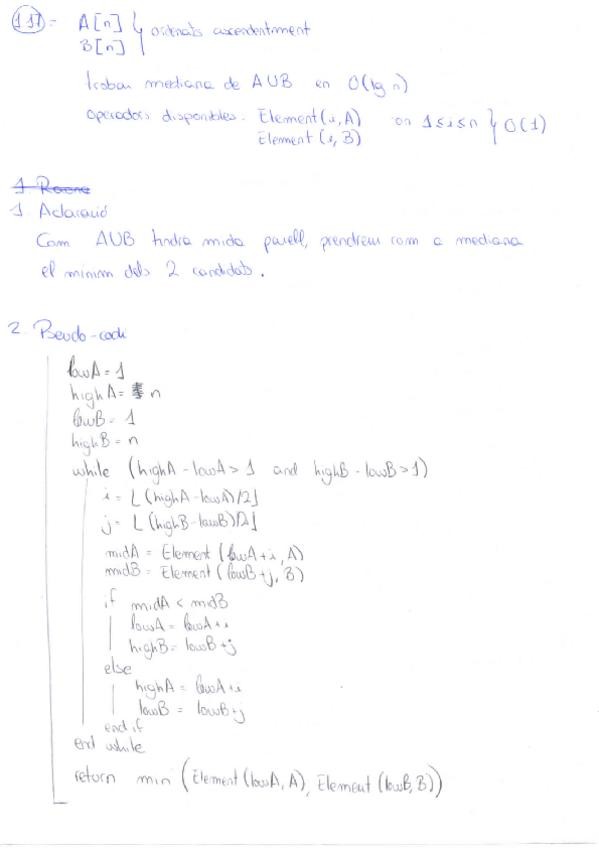 1.17 = A[n] } ordenats ascendentment
B[n]
trobar mediana de A∪B en O(lg n)
operadors disponibles. Element(i,A) on 1≤i≤n } O(1)
Element(i,B)
1. Aclaració
Com A∪B tindrà mida parell, prendrem com a mediana
el mínim dels 2 candidats.
2. Pseudo-codi
lowA = 1
highA = n
lowB = 1
highB = n
while (highA - lowA > 1 and highB - lowB > 1)
i = ⌊(highA - lowA)/2⌋
j = ⌊(highB - lowB)/2⌋
midA = Element(lowA+i, A)
midB = Element(lowB+j, B)
if midA < midB
lowA = lowA+i
highB = lowB+j
else
highA = lowA+i
lowB = lowB+j
end if
end while
return min (Element(lowA,A), Element(lowB,B))